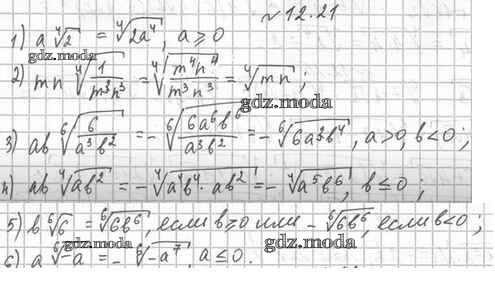 №12.21
1) a ∜2 = ∜(2a⁴), a ⩾ 0
gdz.moda
2) mn ∜(1/(m³n³)) = ∜((m⁴n⁴)/(m³n³)) = ∜(mn) ;
gdz.moda
3) ab ⁶√(6/(a³b²)) = - ⁶√((6a⁶b⁶)/(a³b²)) = - ⁶√(6a³b⁴), a>0, b<0 ;
gdz.moda
4) ab ∜(ab²) = - ∜(a⁴b⁴ · ab²) = - ∜(a⁵b⁶), b ≤ 0 ;
5) b ⁶√6 = ⁶√(6b⁶), если b ⩾ 0 или - ⁶√(6b⁶), если b<0 ;
gdz.moda gdz.moda
6) a ⁶√(-a) = - ⁶√(-a⁷), a ≤ 0.